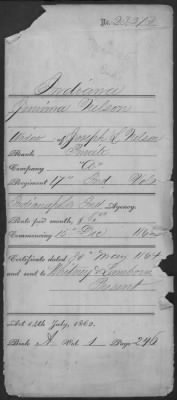 No. 22212
Indiana
Jemima Nelson
Widow of Joseph L. Nelson
Rank Privt
Company "A"
Regiment 17" Ind Vols
Indianapolis Ind Agency.
Rate per month, $8
Commencing 15" Dec 186
Certificate dated 30" May 1864
and sent to Whitney &
Present
Act 14th July, 1862.
Book A Vol. 1 Page 246